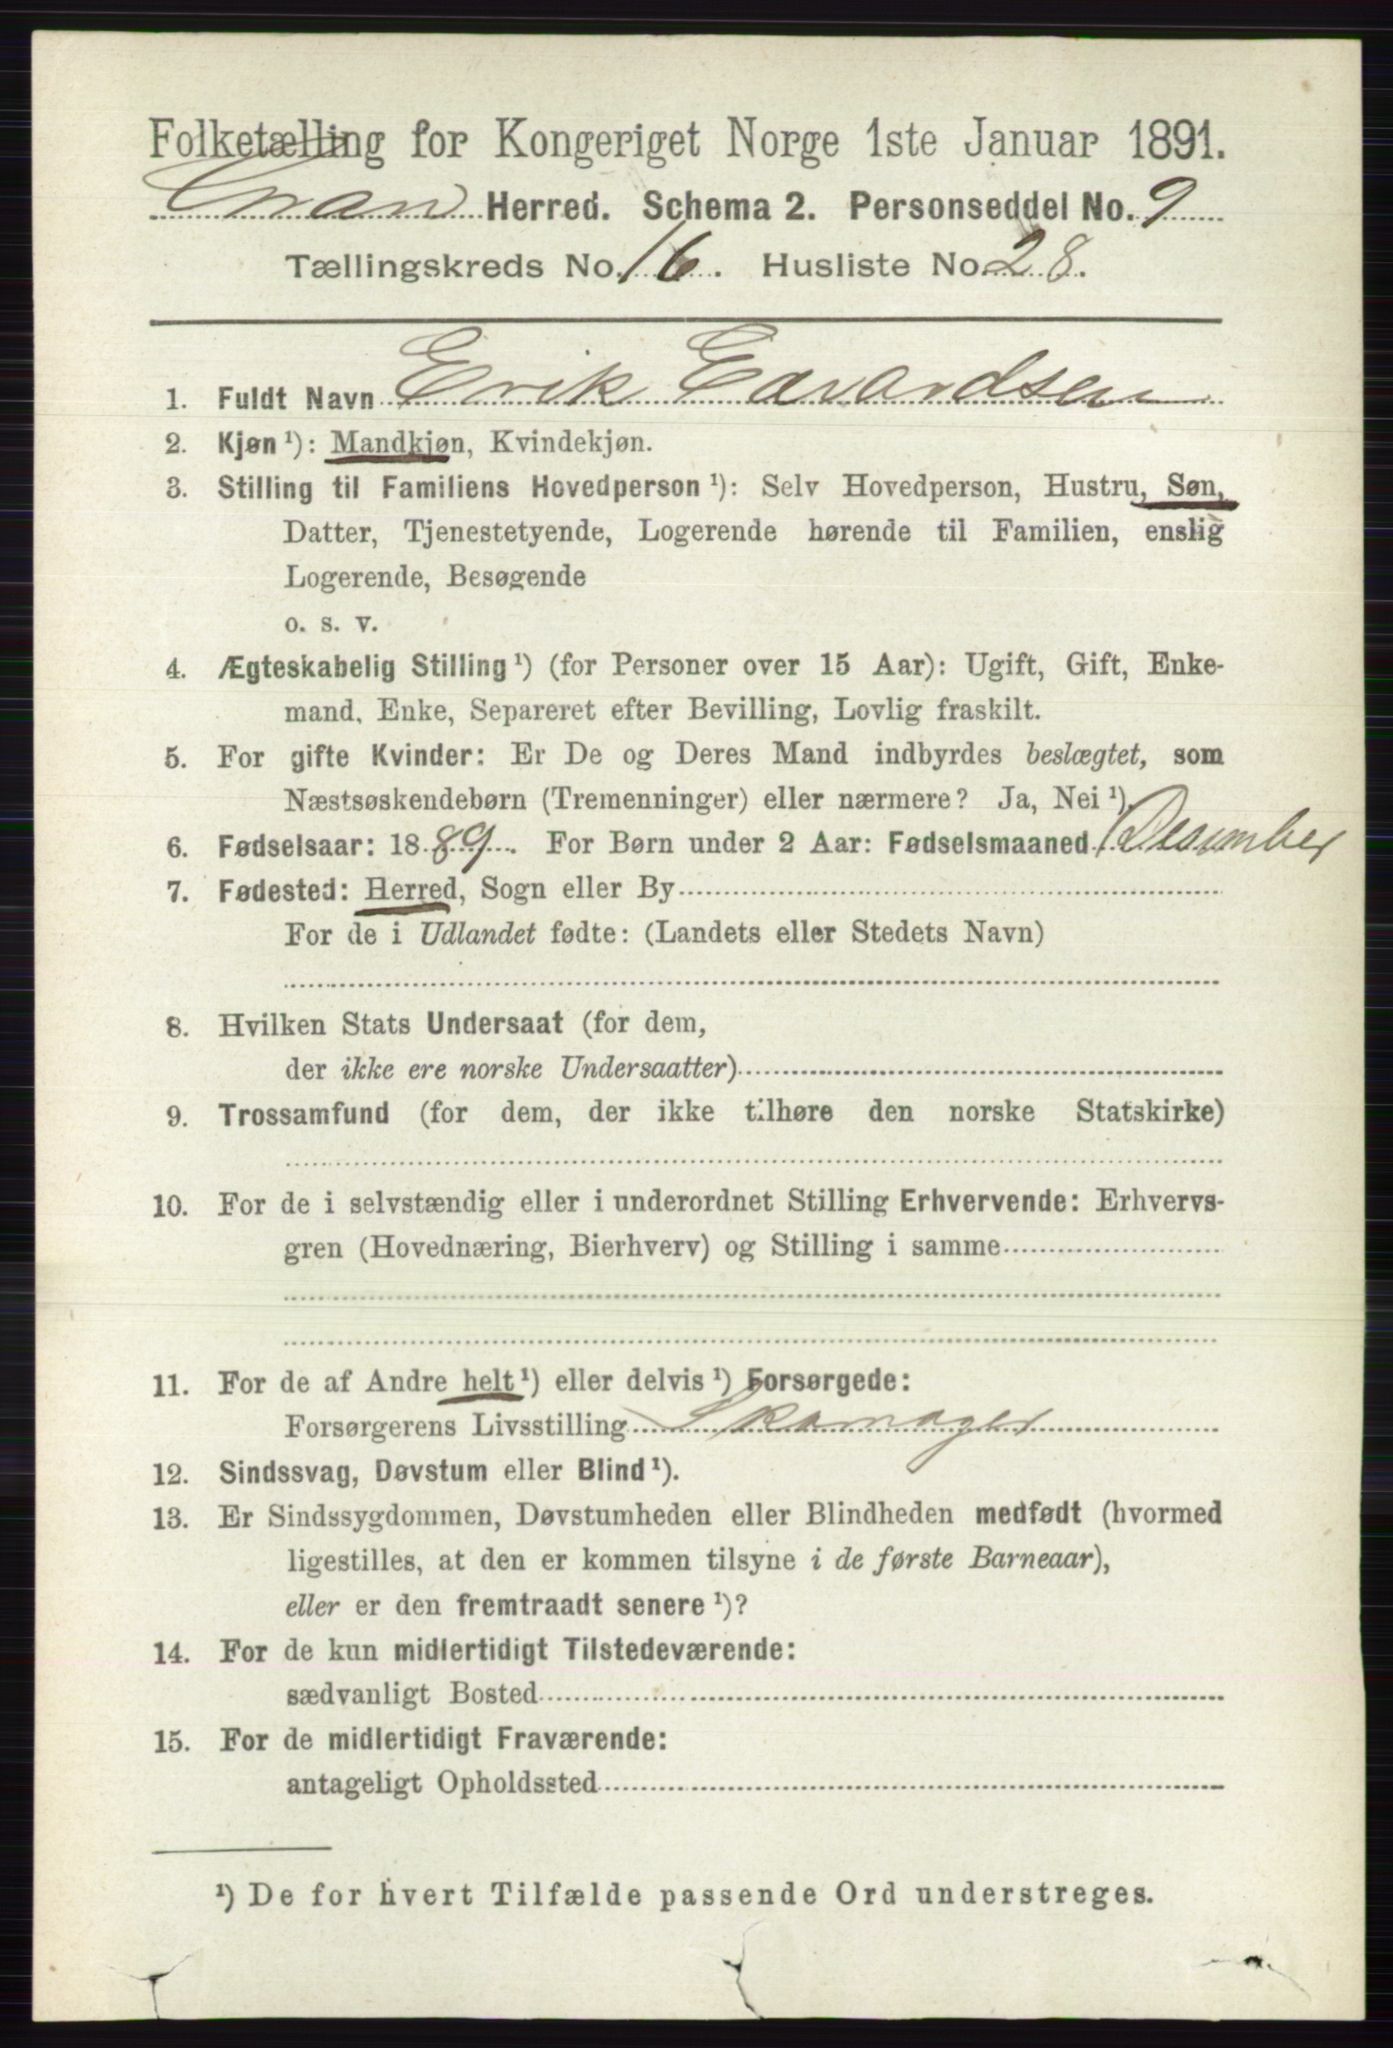 Folketælling for Kongeriget Norge 1ste Januar 1891.
Gran Herred. Schema 2. Personseddel No. 9
Tællingskreds No. 16. Husliste No. 28.
1. Fuldt Navn Erik Edvardsen
2. Kjøn ¹): Mandkjøn, Kvindekjøn.
3. Stilling til Familiens Hovedperson ¹): Selv Hovedperson, Hustru, Søn,
Datter, Tjenestetyende, Logerende hørende til Familien, enslig
Logerende, Besøgende
o. s. v.
4. Ægteskabelig Stilling ¹) (for Personer over 15 Aar): Ugift, Gift, Enke-
mand, Enke, Separeret efter Bevilling, Lovlig fraskilt.
5. For gifte Kvinder: Er De og Deres Mand indbyrdes beslægtet, som
Næstsøskendebørn (Tremenninger) eller nærmere? Ja, Nei ¹).
6. Fødselsaar: 1889. For Børn under 2 Aar: Fødselsmaaned Desember
7. Fødested: Herred, Sogn eller By
For de i Udlandet fødte: (Landets eller Stedets Navn)
8. Hvilken Stats Undersaat (for dem,
der ikke ere norske Undersaatter)
9. Trossamfund (for dem, der ikke tilhøre den norske Statskirke)
10. For de i selvstændig eller i underordnet Stilling Erhvervende: Erhvervs-
gren (Hovednæring, Bierhverv) og Stilling i samme
11. For de af Andre helt ¹) eller delvis ¹) Forsørgede:
Forsørgerens Livsstilling Skomager
12. Sindssvag, Døvstum eller Blind ¹).
13. Er Sindssygdommen, Døvstumheden eller Blindheden medfødt (hvormed
ligestilles, at den er kommen tilsyne i de første Barneaar),
eller er den fremtraadt senere ¹)?
14. For de kun midlertidigt Tilstedeværende:
sædvanligt Bosted
15. For de midlertidigt Fraværende:
antageligt Opholdssted
¹) De for hvert Tilfælde passende Ord understreges.